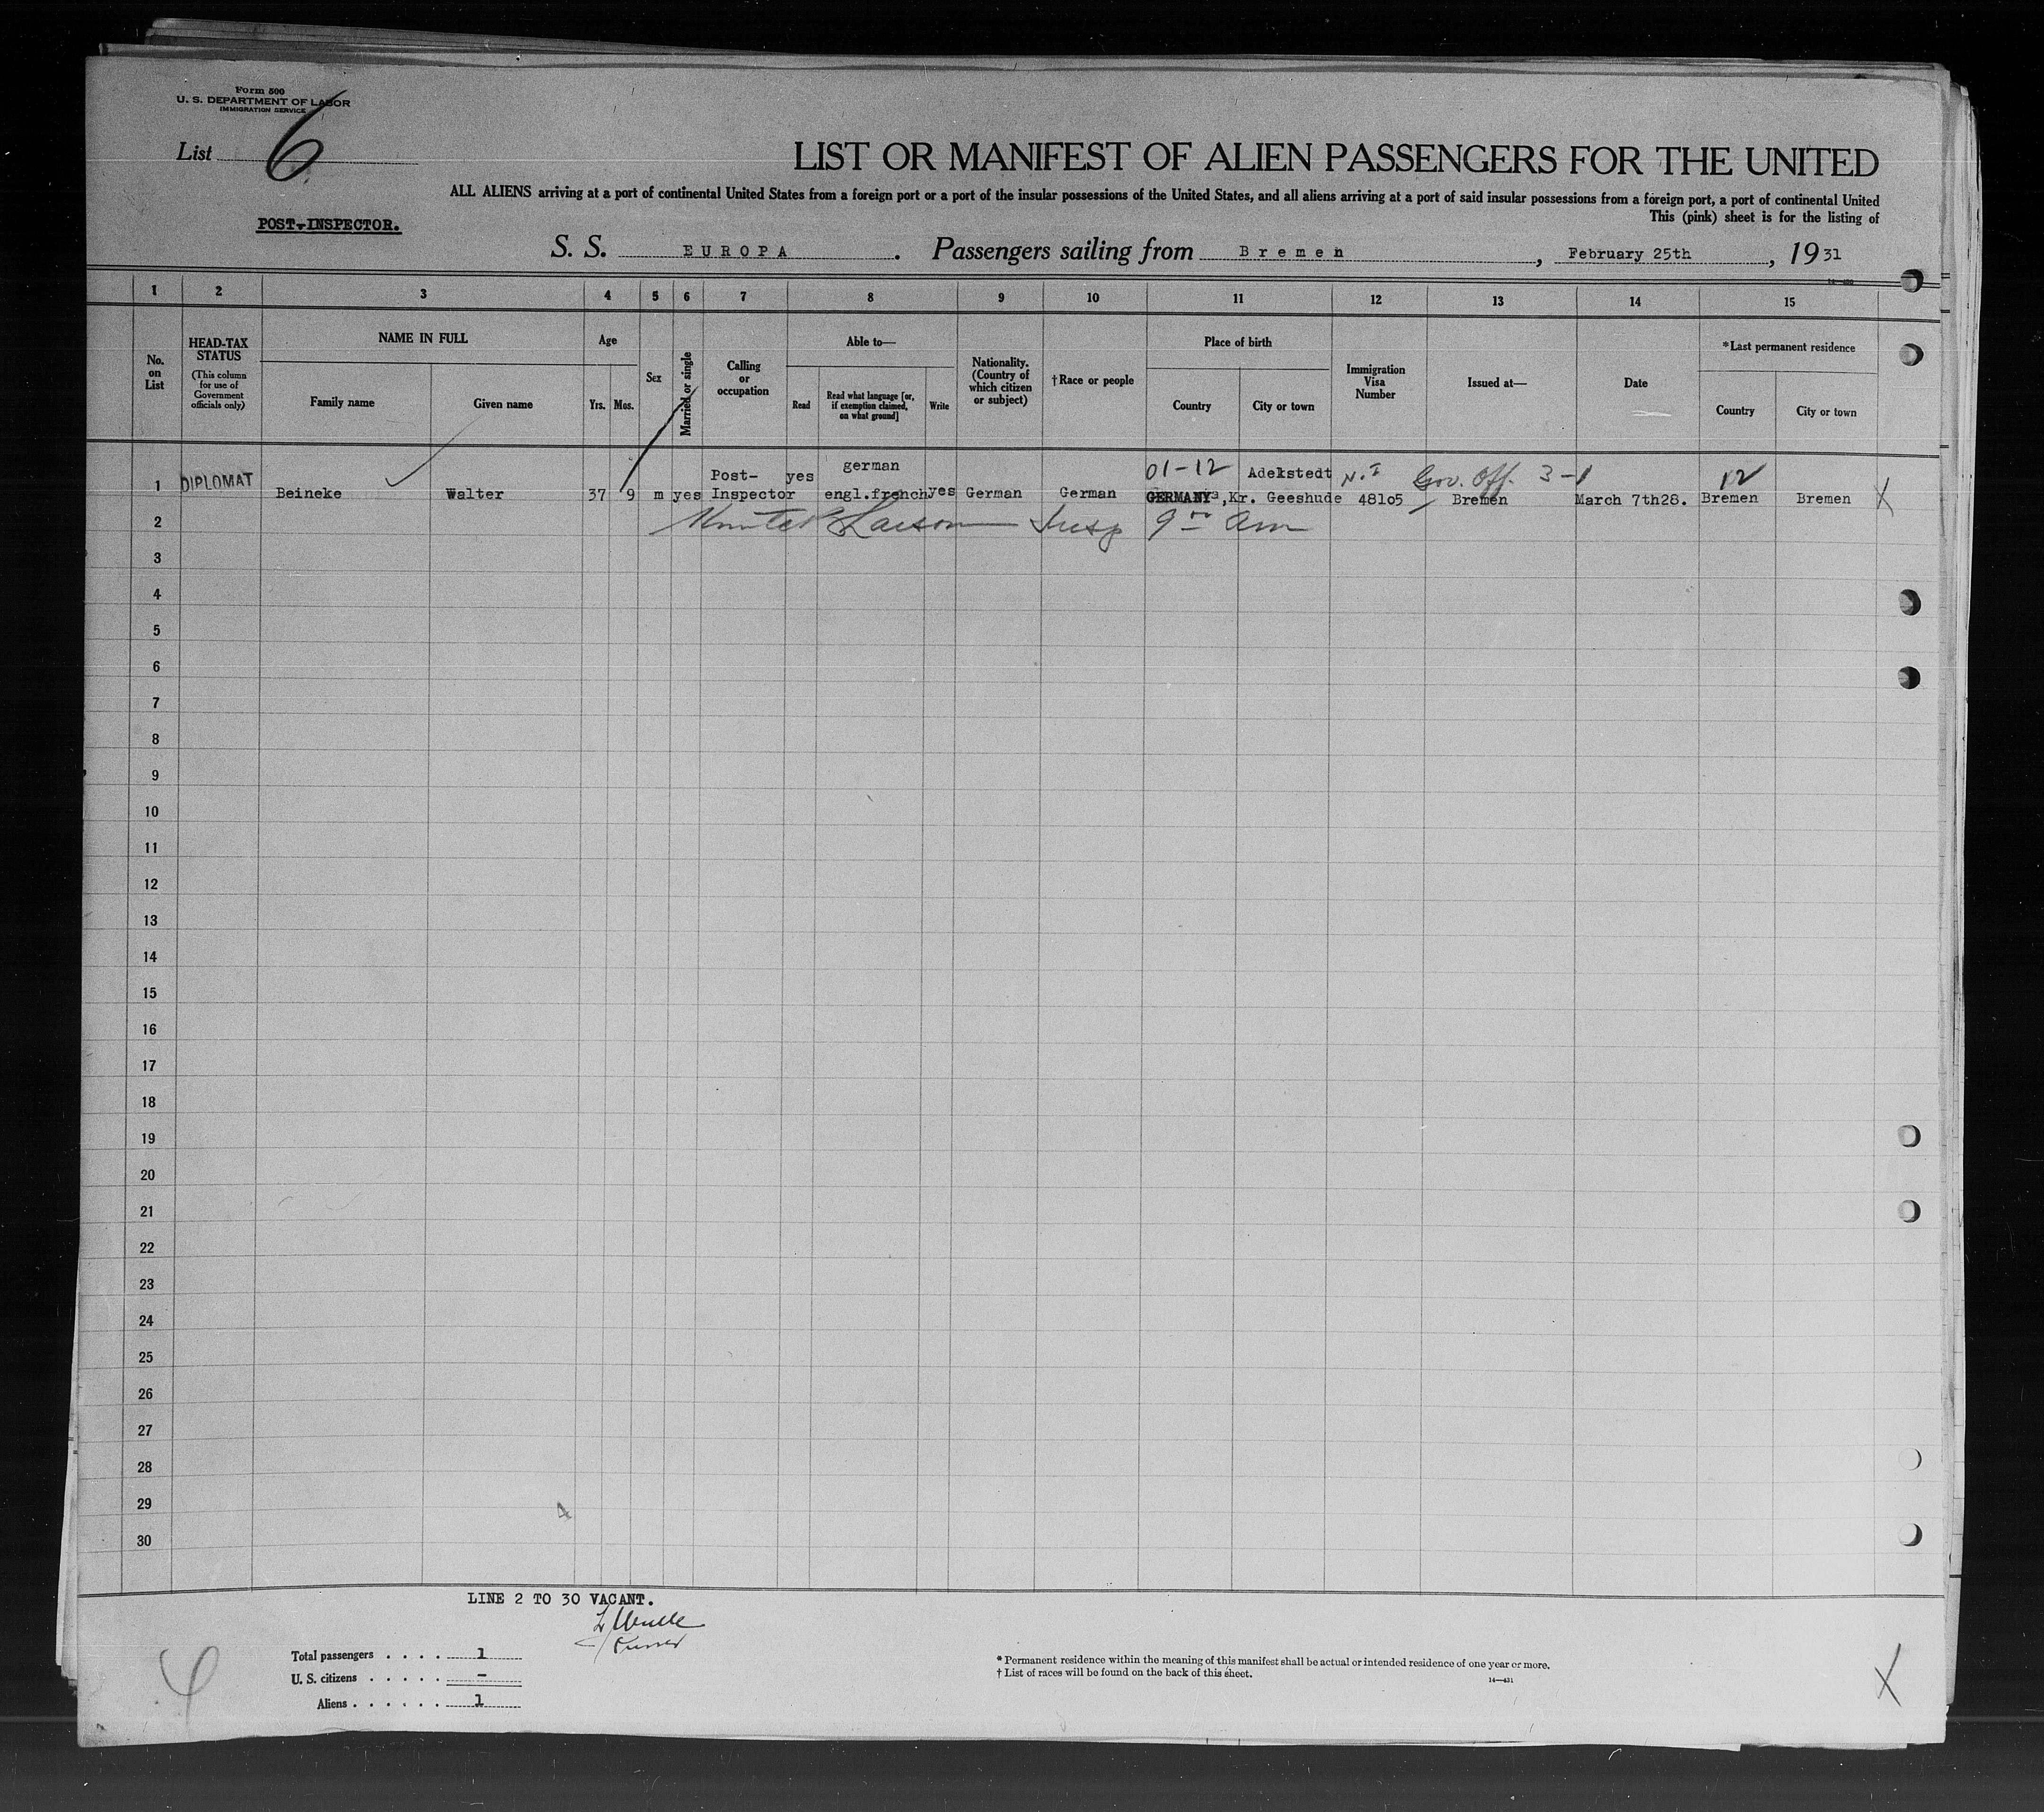 Form 500
U. S. DEPARTMENT OF LABOR
IMMIGRATION SERVICE
List 6
LIST OR MANIFEST OF ALIEN PASSENGERS FOR THE UNITED
ALL ALIENS arriving at a port of continental United States from a foreign port or a port of the insular possessions of the United States, and all aliens arriving at a port of said insular possessions from a foreign port, a port of continental United
This (pink) sheet is for the listing of
POST-INSPECTOR.
S. S. EUROPA. Passengers sailing from Bremen, February 25th, 1931
1 2 3 4 5 6 7 8 9 10 11 12 13 14 15
No. on List
HEAD-TAX STATUS
(This column for use of Government officials only)
NAME IN FULL
Family name
Given name
Age
Yrs. Mos.
Sex
Married or single
Calling or occupation
Able to—
Read
Read what language [or, if exemption claimed, on what ground]
Write
Nationality. (Country of which citizen or subject)
†Race or people
Place of birth
Country
City or town
Immigration Visa Number
Issued at—
Date
*Last permanent residence
Country
City or town
01-12 Gov. Off. 3-1 12
Post- yes german Adekstedt
1 DIPLOMAT Beineke Walter 37 9 m yes Inspector engl.french yes German German GERMANY, Kr. Geeshude 48105 Bremen March 7th28. Bremen Bremen X
2 Larson Insp 9 am
3
4
5
6
7
8
9
10
11
12
13
14
15
16
17
18
19
20
21
22
23
24
25
26
27
28
29
30
LINE 2 TO 30 VACANT.
Total passengers . . . . 1
U. S. citizens . . . . . -
Aliens . . . . . . 1
* Permanent residence within the meaning of this manifest shall be actual or intended residence of one year or more.
† List of races will be found on the back of this sheet.
14—431
X